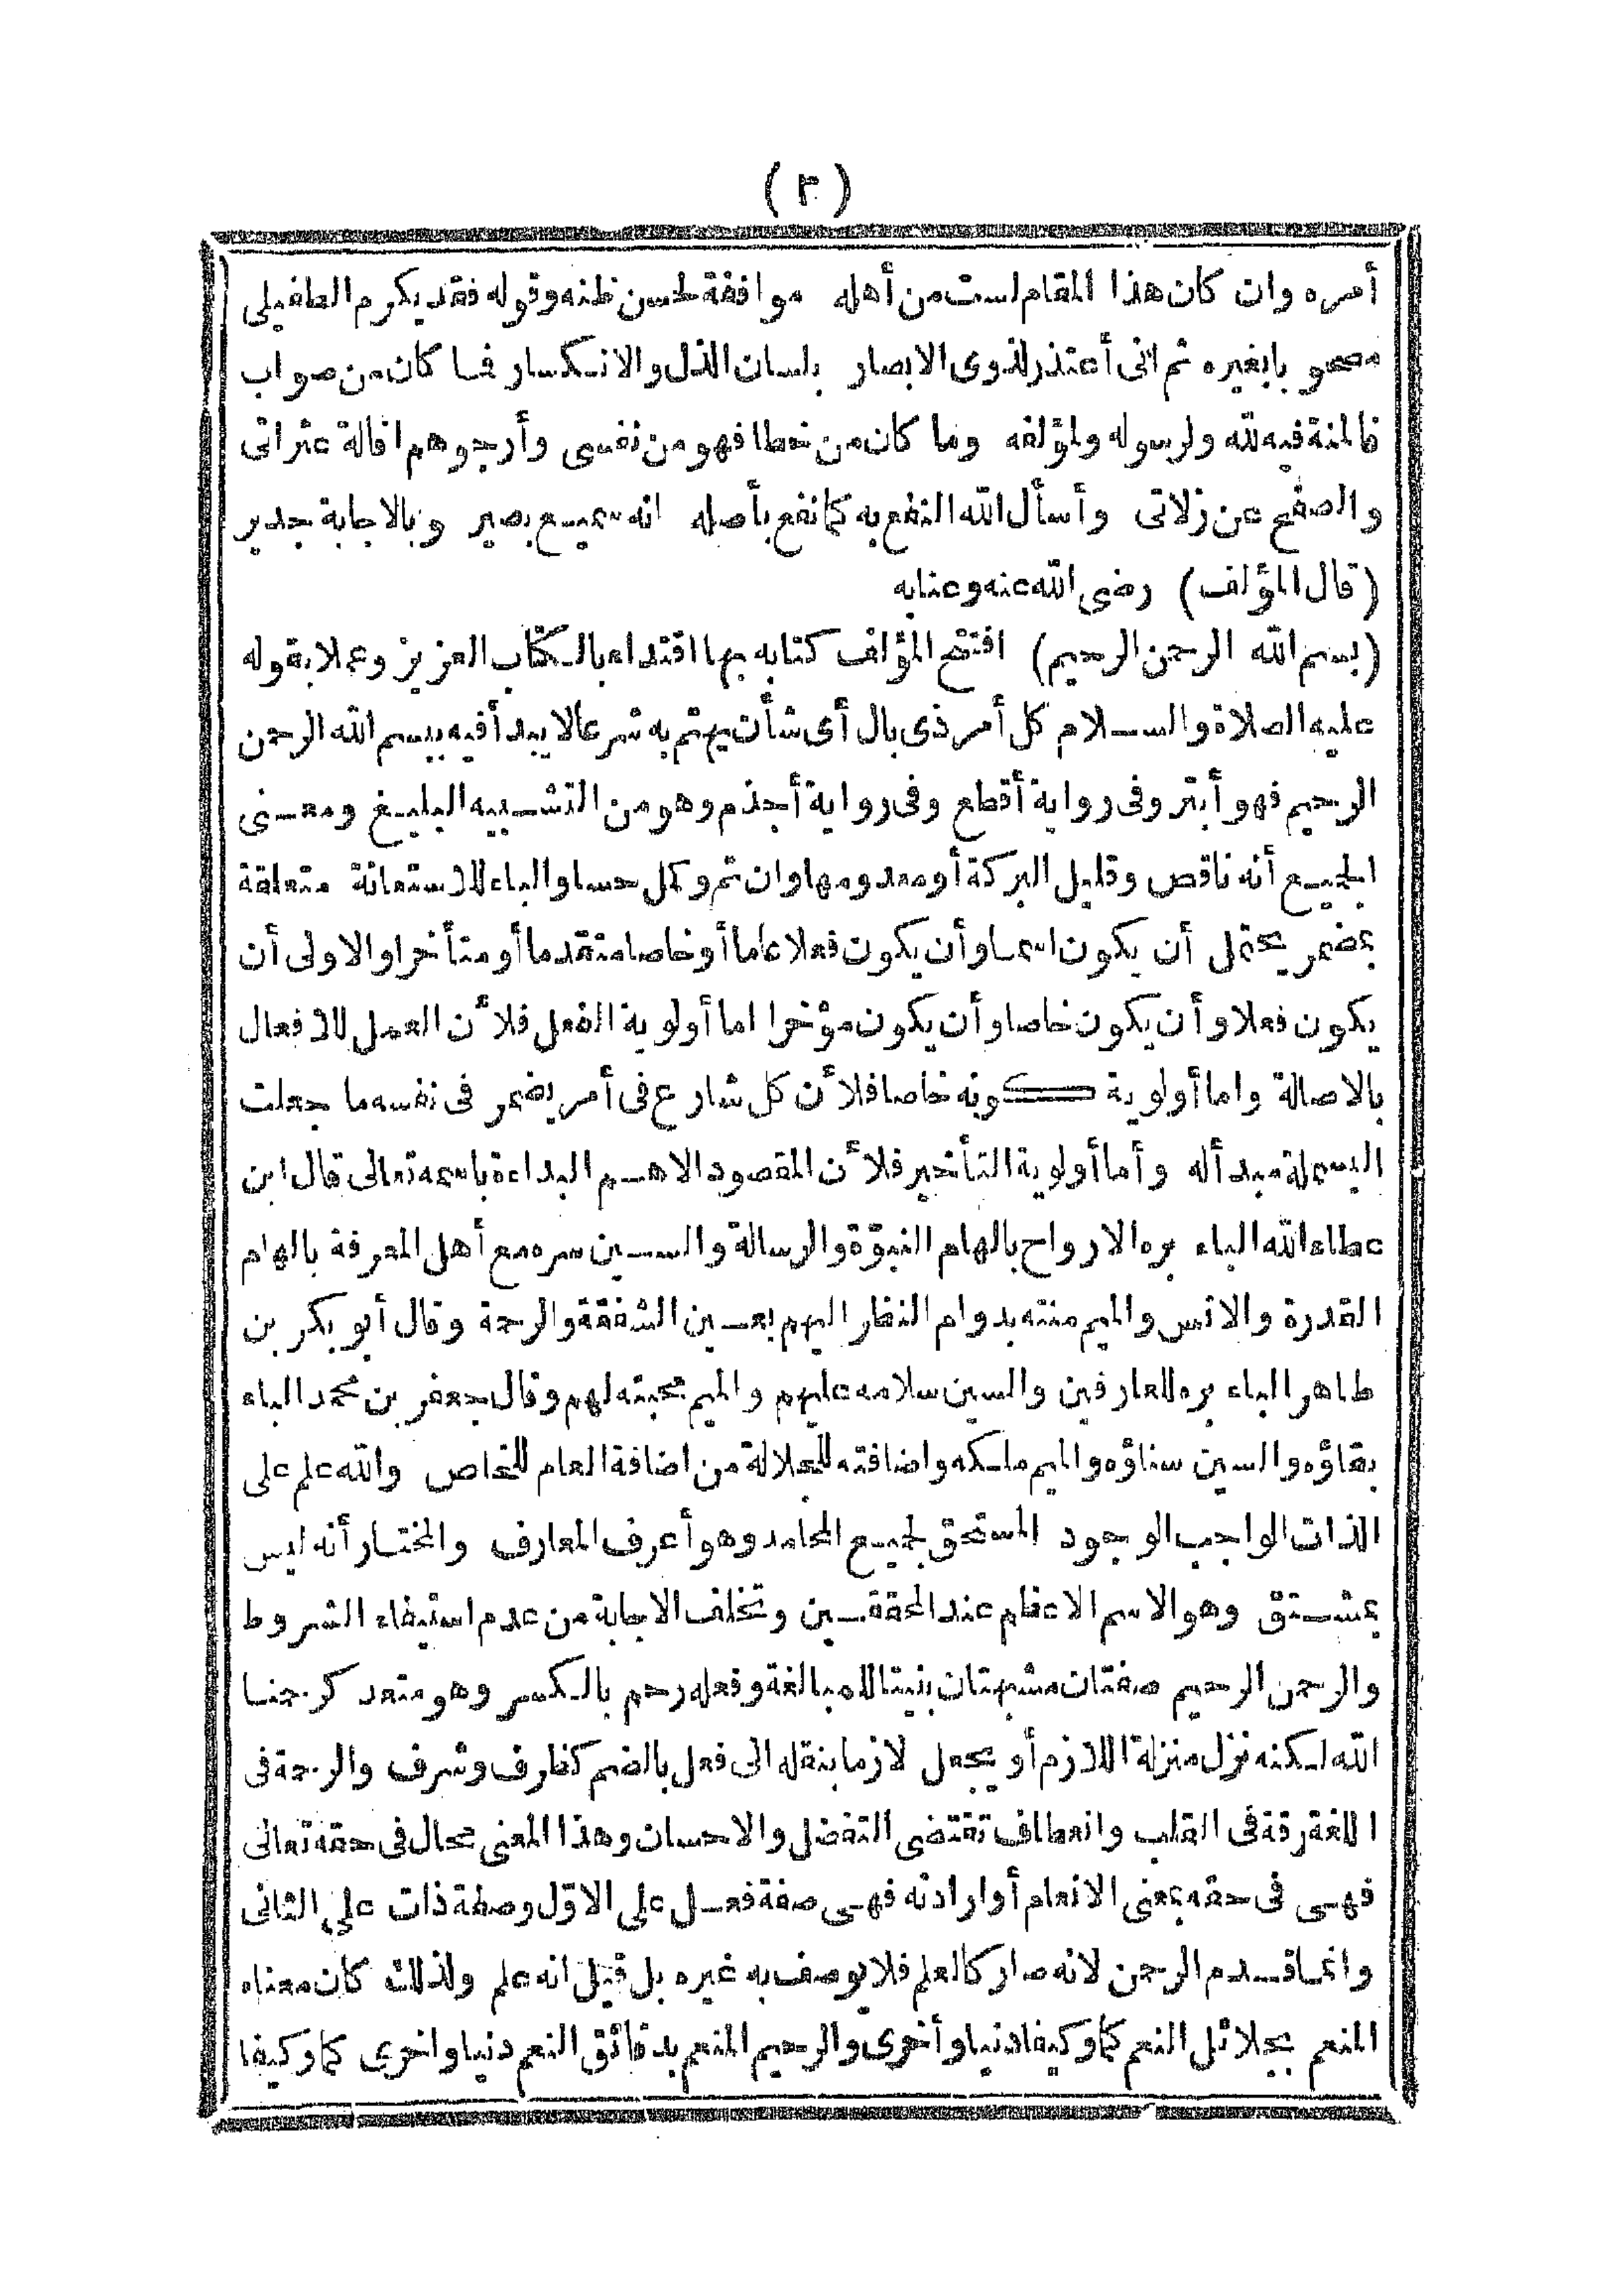 (٣)
أمره وان كان هذا المقام لست من أهله موافقة لحسن ظنه وقوله فقد يكرم الطفيلى
مصحوبا بغيره ثم انى أعتذر لذوى الابصار بلسان الذل والانكسار فما كان من صواب
فالمنة فيه لله ولرسوله ولمؤلفه وما كان من خطا فهو من نفسى وأرجوهم اقالة عثراتى
والصفح عن زلاتى وأسأل الله النفع به كما نفع بأصله انه سميع بصير وبالاجابة جدير
(قال المؤلف) رضى الله عنه وعنا به
(بسم الله الرحمن الرحيم) افتتح المؤلف كتابه بها اقتداء بالكتاب العزيز وعملا بقوله
عليه الصلاة والسلام كل أمر ذى بال أى شأن يهتم به شرعا لا يبدأ فيه ببسم الله الرحمن
الرحيم فهو أبتر وفى رواية أقطع وفى رواية أجذم وهو من التشبيه البليغ ومعنى
الجميع أنه ناقص وقليل البركة أو معدومها وان تم وكمل حسا والباء للاستعانة متعلقة
بمضمر يحتمل أن يكون اسما وأن يكون فعلا عاما أو خاصا متقدما أو متأخرا والاولى أن
يكون فعلا وأن يكون خاصا وأن يكون مؤخرا اما أولوية الفعل فلأن العمل للافعال
بالاصالة واما أولوية كونه خاصا فلأن كل شارع فى أمر يضمر فى نفسه ما جعلت
البسملة مبدأ له وأما أولوية التأخير فلأن المقصود الاهم البداءة باسمه تعالى قال ابن
عطاء الله الباء بره الارواح بالهام النبوّة والرسالة والسين سره مع أهل المعرفة بالهام
القدرة والانس والميم منته بدوام النظر اليهم بعين الشفقة والرحمة وقال أبو بكر بن
طاهر الباء بره للعارفين والسين سلامه عليهم والميم محبته لهم وقال جعفر بن محمد الباء
بقاؤه والسين سناؤه والميم ملكه واضافته للجلالة من اضافة العام للخاص والله علم على
الذات الواجب الوجود المستحق لجميع المحامد وهو أعرف المعارف والمختار أنه ليس
بمشتق وهو الاسم الاعظم عند المحققين وتخلف الاجابة من عدم استيفاء الشروط
والرحمن الرحيم صفتان مشبهتان بنيتا للمبالغة وفعله رحم بالكسر وهو متعد كرحمنا
الله لكنه نزل منزلة اللازم أو يجعل لازما بنقله الى فعل بالضم كظرف وشرف والرحمة فى
اللغة رقة فى القلب وانعطاف تقتضى التفضل والاحسان وهذا المعنى محال فى حقه تعالى
فهى فى حقه بمعنى الانعام أو ارادته فهى صفة فعل على الاوّل وصفة ذات على الثانى
وانما قدم الرحمن لانه صار كالعلم فلا يوصف به غيره بل قيل انه علم ولذلك كان معناه
المنعم بجلائل النعم كما وكيفا دنيا وأخرى والرحيم المنعم بدقائق النعم دنيا واخرى كما وكيفا